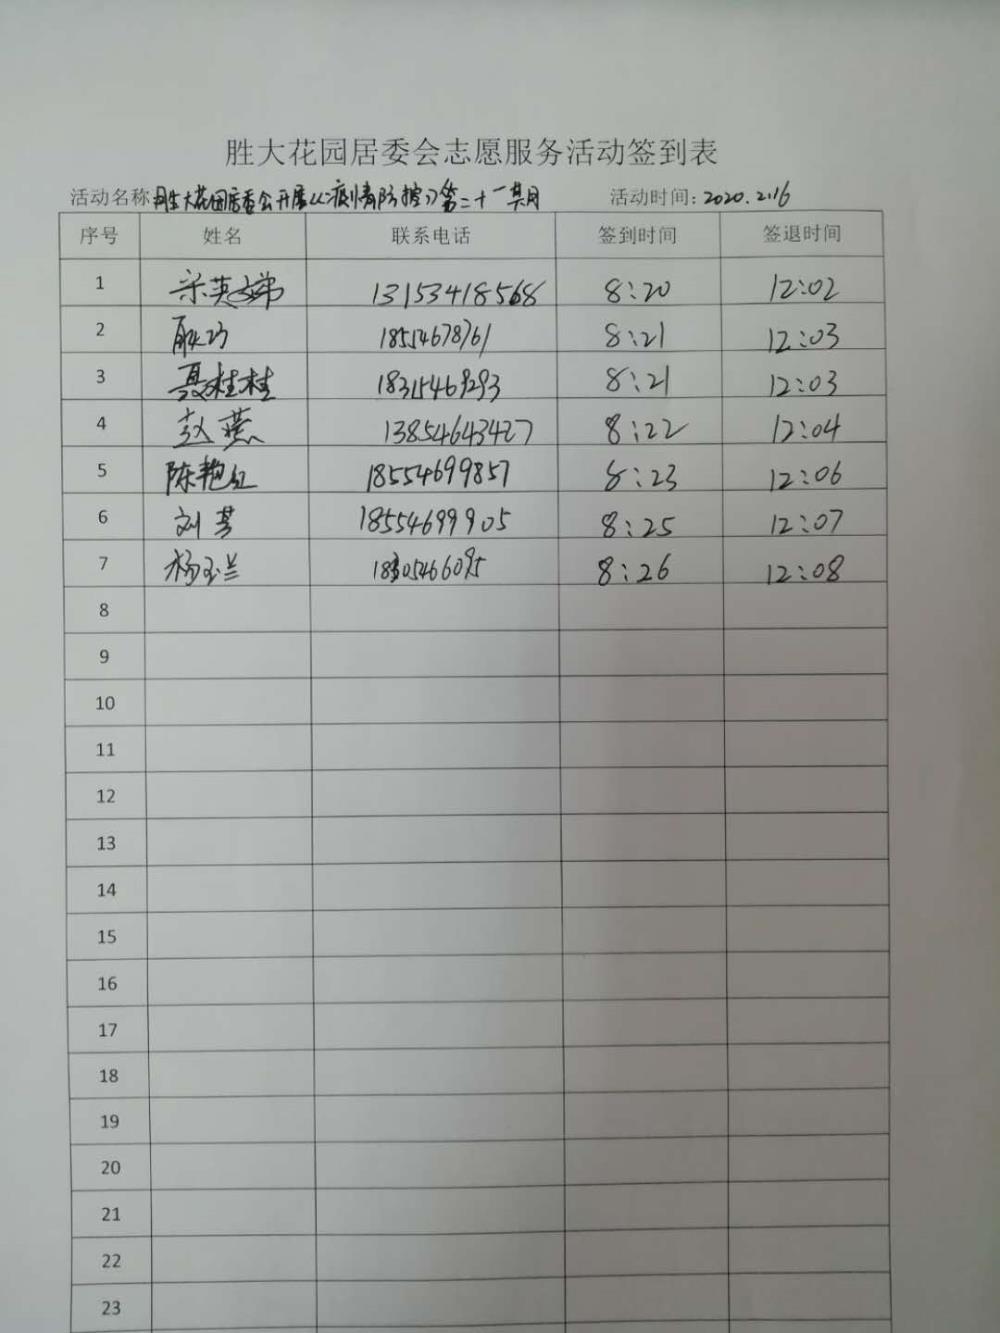 胜大花园居委会志愿服务活动签到表
活动名称 胜大花园居委会开展《疫情防控》第二十一期 活动时间: 2020.2.16
序号 姓名 联系电话 签到时间 签退时间
1 13153418568 8:20 12:02
2 耿巧 18554678761 8:21 12:03
3 聂桂桂 8:21 12:03
4 赵燕 13854643427 8:22 12:04
5 陈艳红 18554699857 8:23 12:06
6 刘芳 18554699905 8:25 12:07
7 杨玉兰 8:26 12:08
8
9
10
11
12
13
14
15
16
17
18
19
20
21
22
23